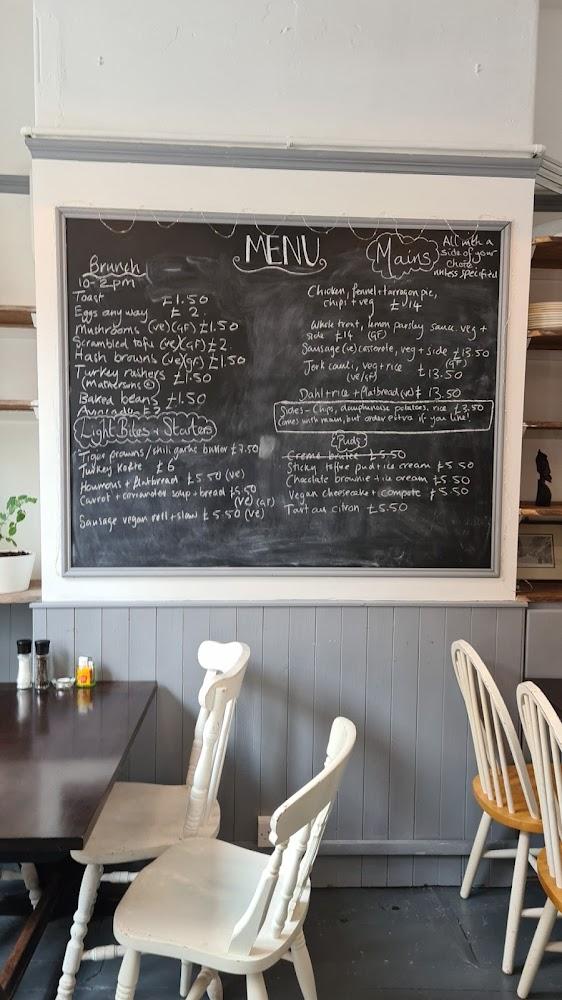 MENU
Brunch
10-2pm
Toast £1.50
Eggs any way £2
Mushrooms (ve)(GF) £1.50
Scrambled tofu (ve)(GF) £2
Hash browns (ve)(GF) £1.50
Turkey rashers £1.50
Baked beans £1.50
Avocado £2
Light Bites + Starters
Tiger prawns / chili garlic butter £7.50
Turkey Kofte £6
Houmous + flatbread £5.50 (ve)
Carrot + coriander soup + bread £5.50
(ve) (GF)
Sausage vegan roll + slaw £5.50 (ve)
Mains
All with a
side of your
choice
unless specified
Chicken, fennel + tarragon pie,
chips + veg £14
Whole trout, lemon parsley sauce. veg +
side £14 (GF)
Sausage (ve) casserole, veg + side £13.50
(GF)
Jerk cauli, veg + rice £13.50
(ve/GF)
Dahl + rice + flatbread (ve) £13.50
Sides - Chips, dauphinoise potatoes, rice £3.50
comes with mains, but order extra if you like!
Puds
Creme brulee £5.50
Sticky toffee pud + ice cream £5.50
Chocolate brownie + ice cream £5.50
Vegan cheesecake + compote £5.50
Tart au citron £5.50